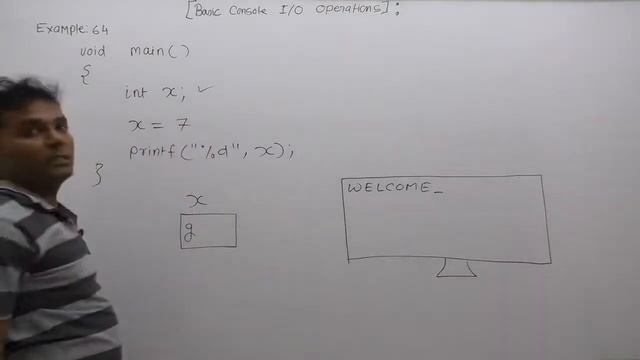 [Basic Console I/O Operations];
Example: 64
void main()
{
int x; ✓
x = 7
printf("%d", x);
}
x
g
WELCOME_